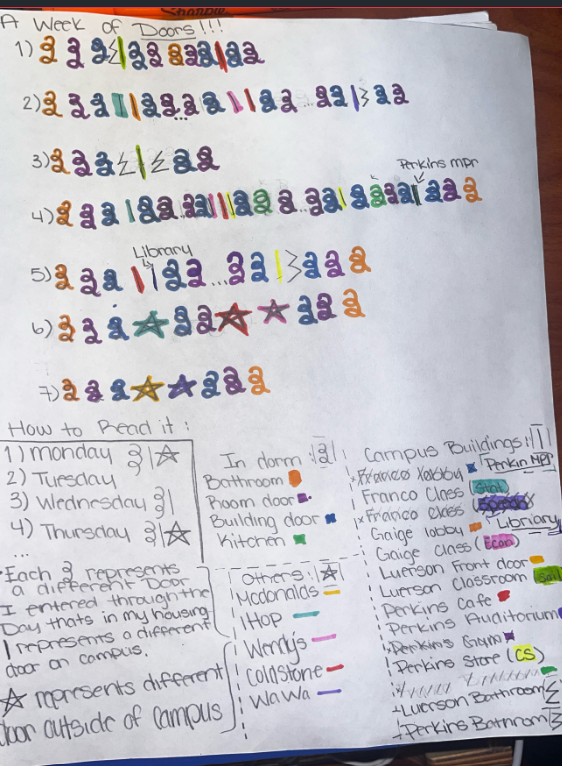 Sharpie
A Week of Doors!!!
1)
2)
...
...
3)
Perkins MPR
4)
...
...
Library
5)
...
6)
7)
How to Read it:
1) Monday
2) Tuesday
3) Wednesday
4) Thursday
...
Each 3 represents
a different Door
I entered through the
Day thats in my housing
| represents a different
door on campus.
☆ represents different
door outside of campus
In dorm:
Bathroom
Room door
Building door
Kitchen
Others:
Mcdonalds
IHop
Wendys
Coldstone
WaWa
Campus Buildings:
Franco Lobby
Perkin MPR
Franco Class
Franco Class
Library
Gaige lobby
Gaige class (Econ)
Luerson Front door
Luerson Classroom
Perkins Cafe
Perkins Auditorium
Perkins
Perkins Store (CS)
Luerson Bathroom
Perkins Bathroom